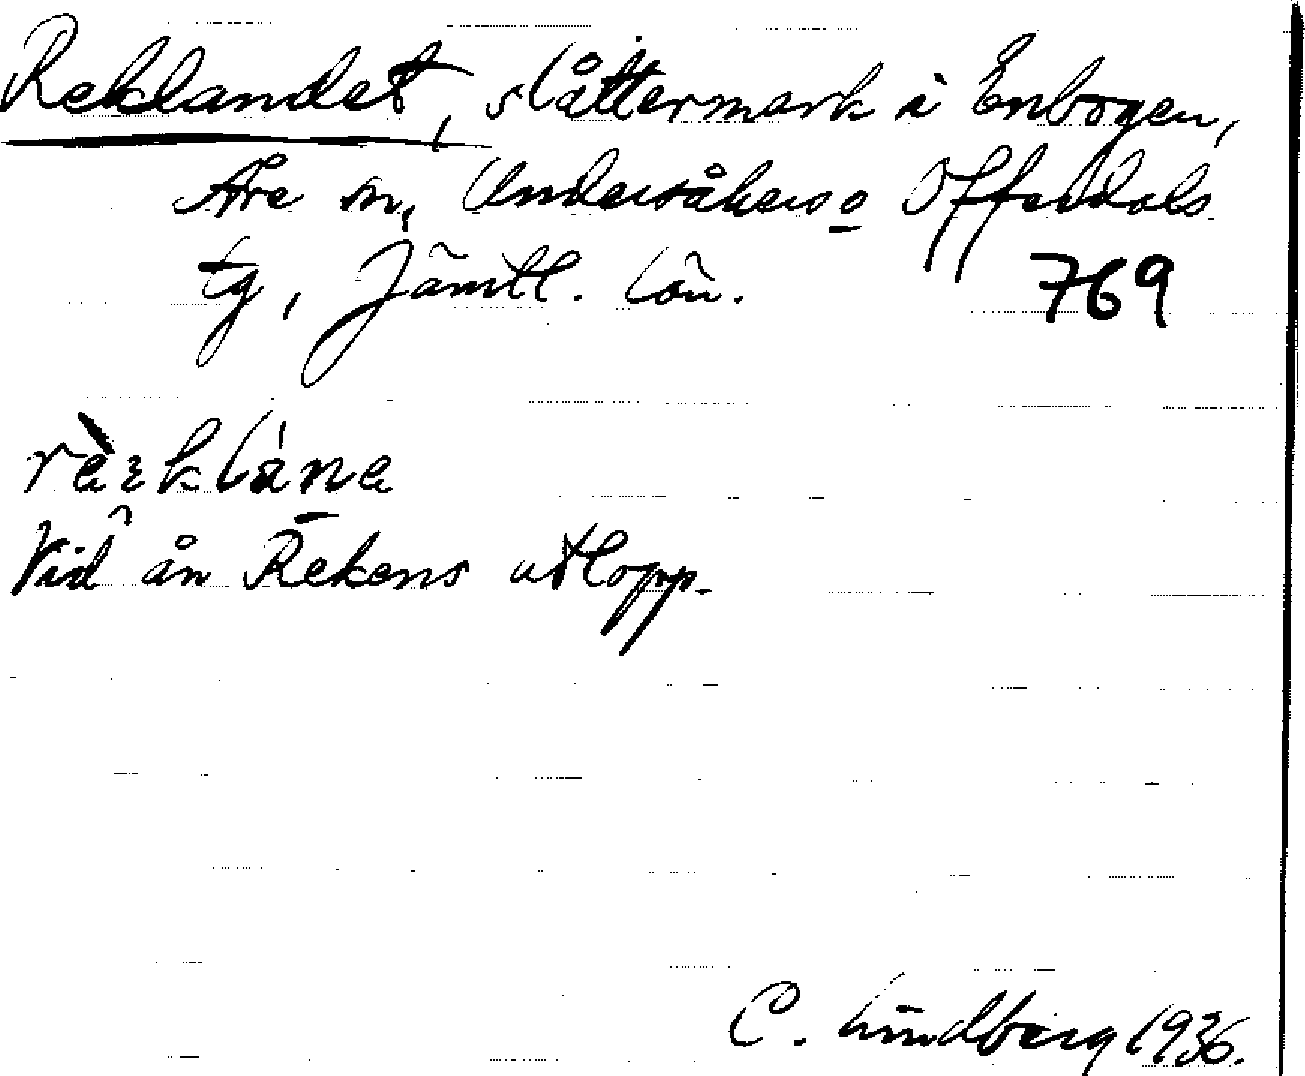 Reklandet, slåttermark i Enbogen,
Åre sn, Undersåkers o Offerdals
tg, Jämtl. län. 769
Vid ån Rekens utlopp.
C. Lindberg 1936.